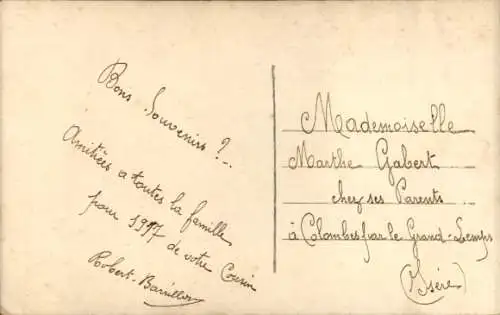 Bons Souvenirs ?..
Amitiées a toutes la famille
pour 1917
de votre Cousin
Robert
Mademoiselle
Marthe Gabert
chez ses Parents
à Colombes par le Grand-Lemps
(Isère)